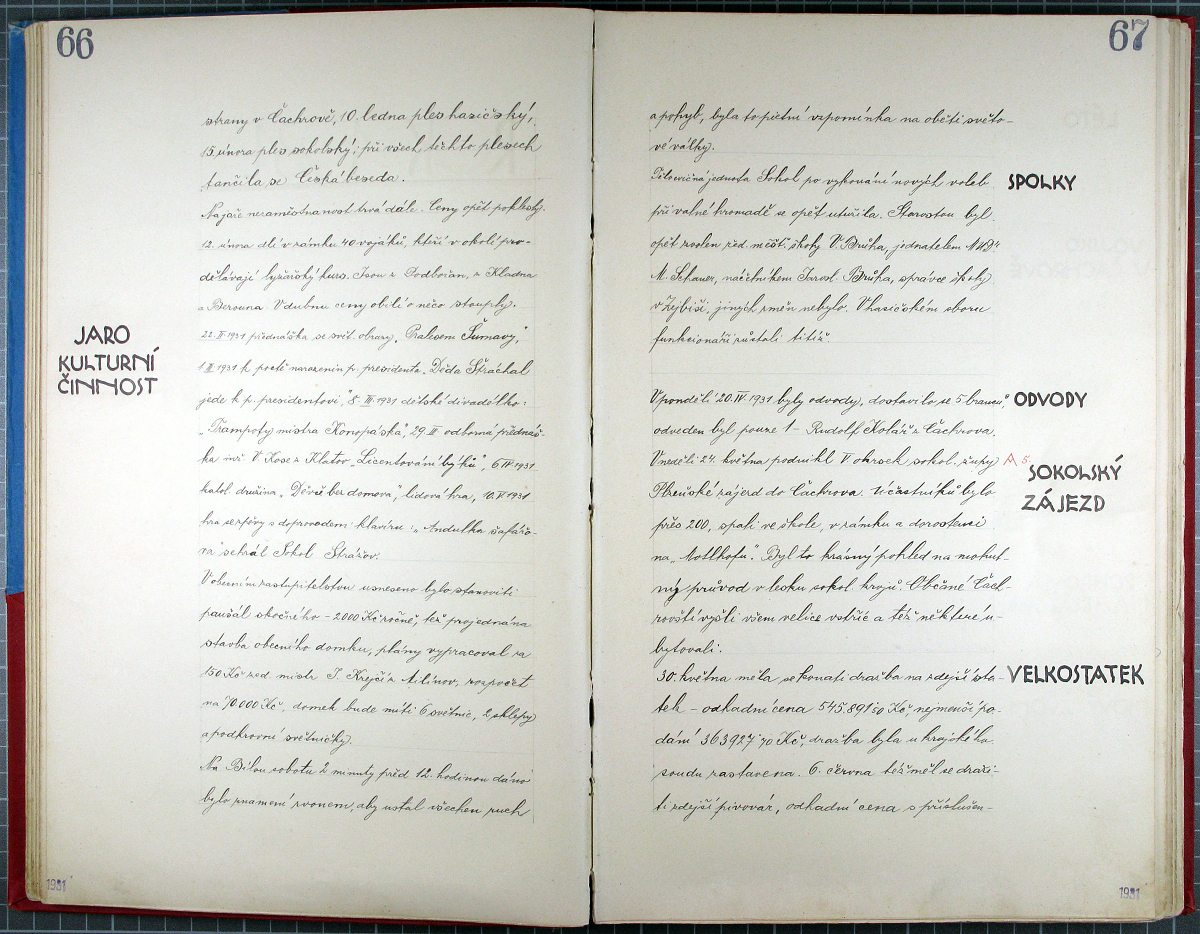 66
strany v Čachrově, 10. ledna ples hasičský,
15. února ples sokolský; při všech těchto plesech
tančila se Česká beseda.
Na jaře nezaměstnanost trvá dále. Ceny opět poklesly.
12. února dlí v zámku 40 vojáků, kteří v okolí pro-
dělávají lyžařský kurs. Jsou z Podbořan, z Kladna
a Berouna. V dubnu ceny obilí o něco stouply.
JARO
KULTURNÍ
ČINNOST
22. II 1931 přednáška se svět. obrazy „Pralesem Šumavy",
1 III 1931 k poctě narozenin p. presidenta „Děda Stráchal
jede k p. presidentovi", 8. III 1931 dětské divadélko:
„Trampoty mistra Konopáska", 29. III odborná přednáš-
ka inž. V. Kose z Klatov „Licentování býků", 6 IV 1931
katol. družina „Děvče bez domova", lidová hra, 10. V 1931
hra se zpěvy s doprovodem klavíru: „Andulka šafářo-
na" sehrál Sokol Strážov.
V obecním zastupitelstvu usneseno bylo stanoviti
paušál skočného – 2000 Kč ročně, též projednána
stavba obecního domku, plány vypracoval za
150 Kč zed. mistr J. Krejčí z Nilinov, rozpočet
na 70.000 Kč, domek bude míti 6 světnic, 2 sklepy
a podkrovní světničky.
Na Bílou sobotu 2 minuty před 12. hodinou dáno
bylo znamení zvonem, aby ustal všechen ruch
1931
67
a pohyb, byla to pietní vzpomínka na oběti světo-
vé války.
SPOLKY
Tělocvičná jednota Sokol po vykonání nových voleb
při valné hromadě se opět utužila. Starostou byl
opět zvolen řed. měšť. školy V. Brůha, jednatelem
M. Schauer, náčelníkem Jarosl. Brůha, správce školy
v Zejbiši, jiných změn nebylo. V hasičském sboru
funkcionáři zůstali titíž.
ODVODY
V pondělí 20. IV 1931 byly odvody, dostavilo se 5 branců,
odveden byl pouze 1 – Rudolf Kolář z Čachrova.
SOKOLSKÝ
ZÁJEZD
V neděli 24. května podnikl V okrsek sokol. župy A 5.
Plzeňské zájezd do Čachrova. Účastníků bylo
přes 200, spali ve škole, v zámku a dorostenci
na „Motlhofu". Byl to krásný pohled na mohut-
ný průvod v lesku sokol. krojů. Občané Čach-
rovští vyšli všem velice vstříc a též některé u-
bytovali.
VELKOSTATEK
30. května měla se konati dražba na zdejší sta-
tek – odhadní cena 545.891·50 Kč, nejmenší po-
dání 363927·70 Kč, dražba byla u krajského
soudu zastavena. 6. června též měl se draži-
ti zdejší pivovár, odhadní cena s příslušen-
1931